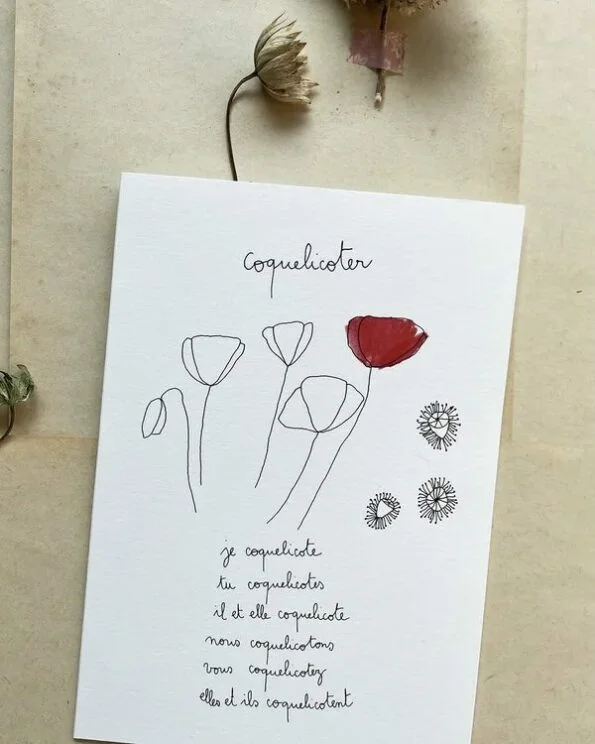 coquelicoter
je coquelicote
tu coquelicotes
il et elle coquelicote
nous coquelicotons
vous coquelicotez
elles et ils coquelicotent